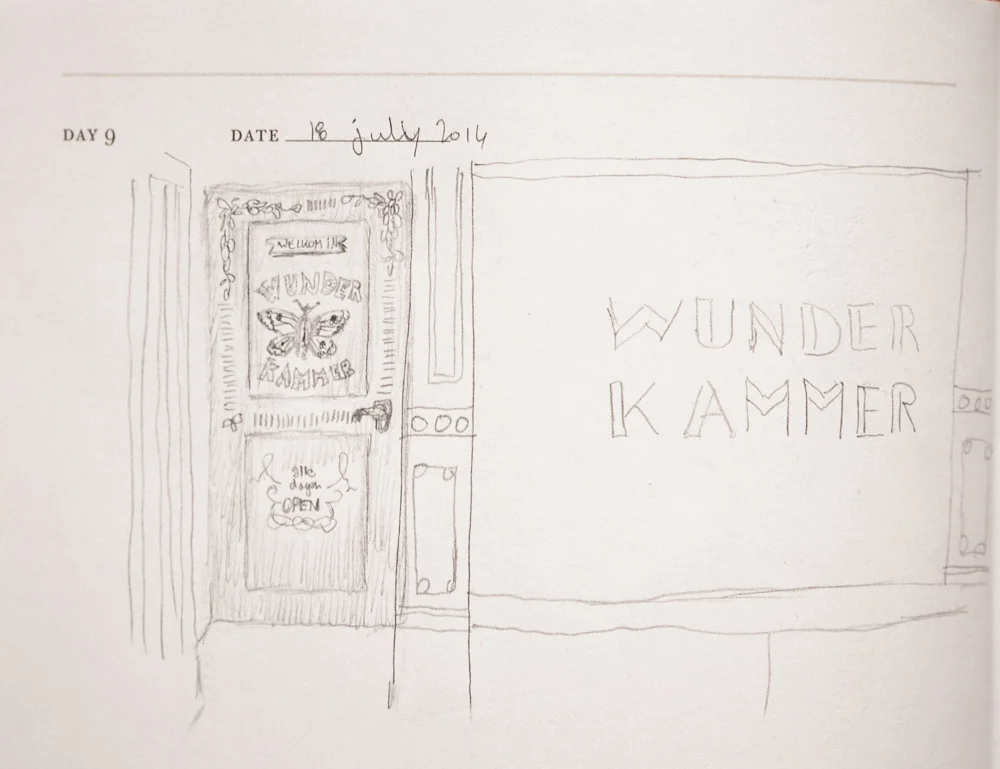 DAY 9
DATE 18 july 2014
WELKOM IN
WUNDER
KAMMER
alle
dagen
OPEN
WUNDER
KAMMER